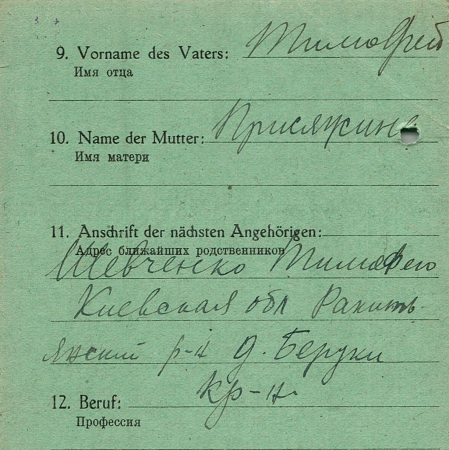 9. Vorname des Vaters: Тимофей
Имя отца
10. Name der Mutter: Присяжина
Имя матери
11. Anschrift der nächsten Angehörigen:
Адрес ближайших родственников
Шевченко Тимофею
Киевская обл Ракит-
янский р-н д. Беруки
12. Beruf: кр-н.
Профессия